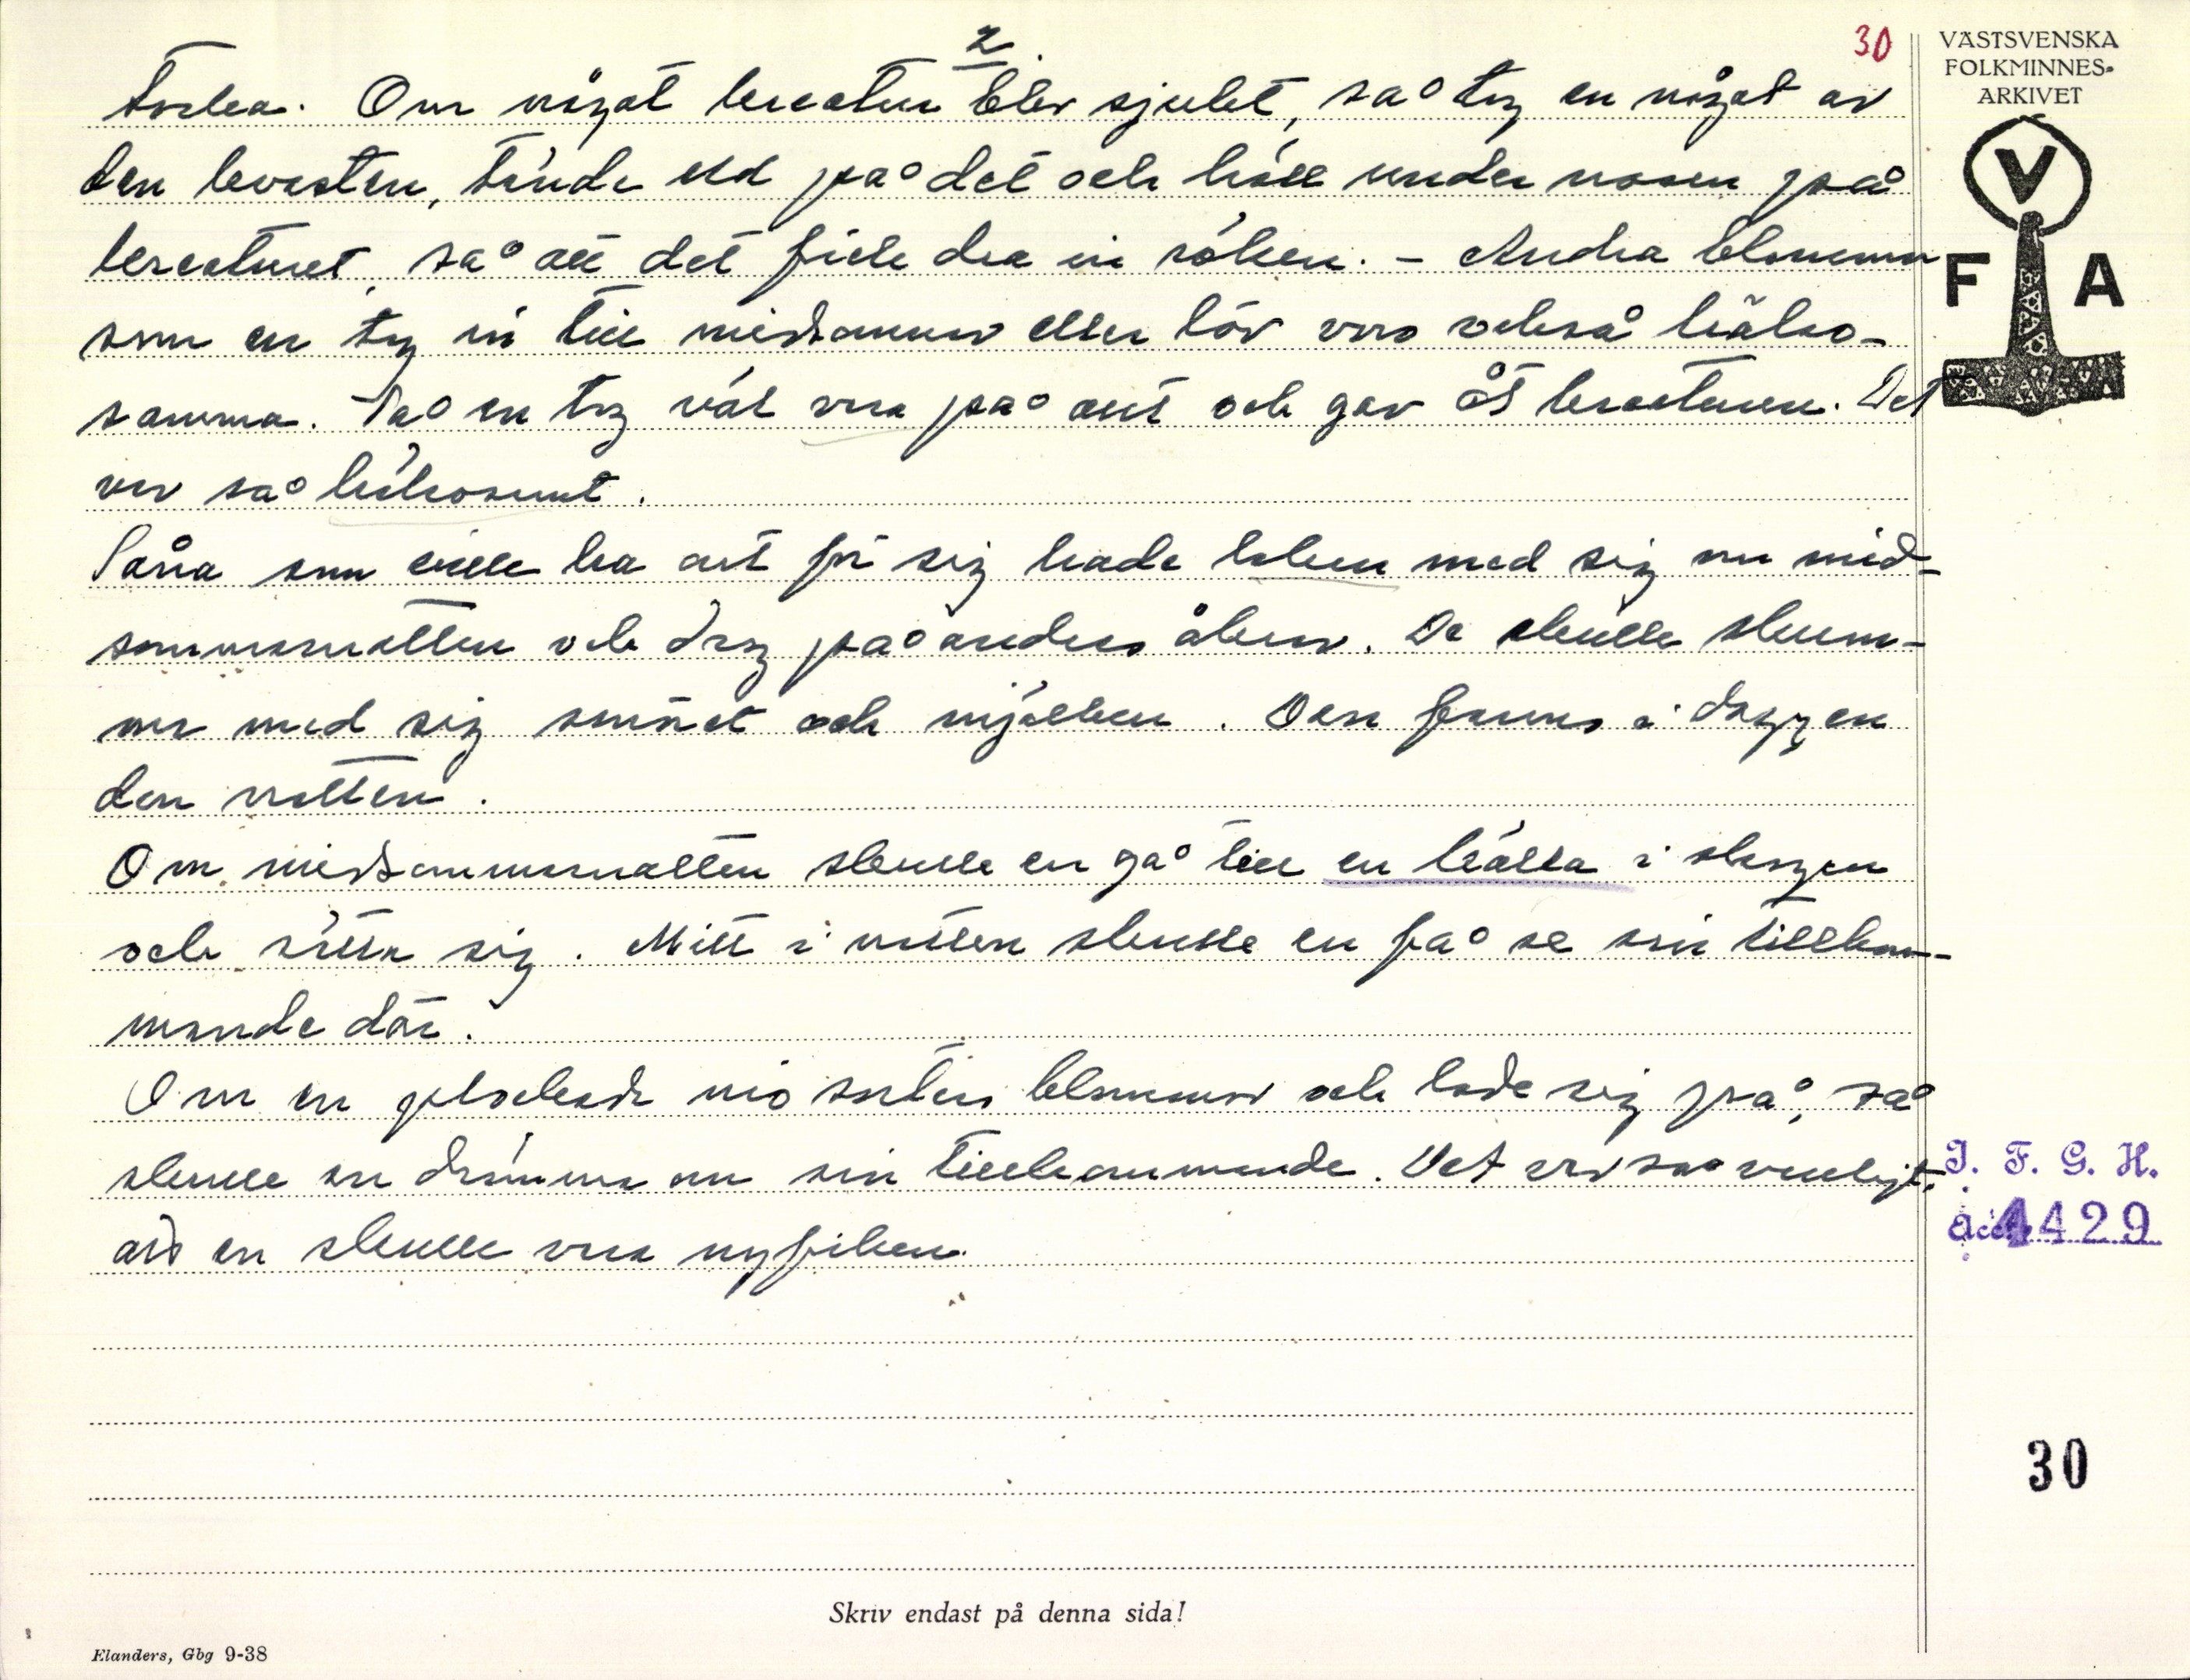 2
30
VÄSTSVENSKA
FOLKMINNES-
ARKIVET
V
F A
torka. Om något kreatur blev sjukt, så tog en något av
den kvasten, tände eld på det och höll under nosen på
kreaturet, så att det fick dra in röken. - Andra blommor
som en tog in till midsommar eller löv voro också hälso-
samma. Så en tog vål vara på allt och gav åt kreaturen. Det
var så hälsosamt.
Såna som ville ha allt för sig hade laken med sig om mid-
sommarnatten och drog på andras åkrar. De skulle skum-
ma med sig smöret och mjölken. Den fanns i daggen
den natten.
Om midsommarnatten skulle en gå till en källa i skogen
och sätta sig. Mitt i natten skulle en få se sin tillkom-
mande där.
Om en plockade nio sorters blommor och lade sig på, så
skulle en drömma om sin tillkommande. Det var så vanligt,
att en skulle vara nyfiken.
I. F. G. H.
Acc. 4429
30
Skriv endast på denna sida!
Elanders, Gbg 9-38